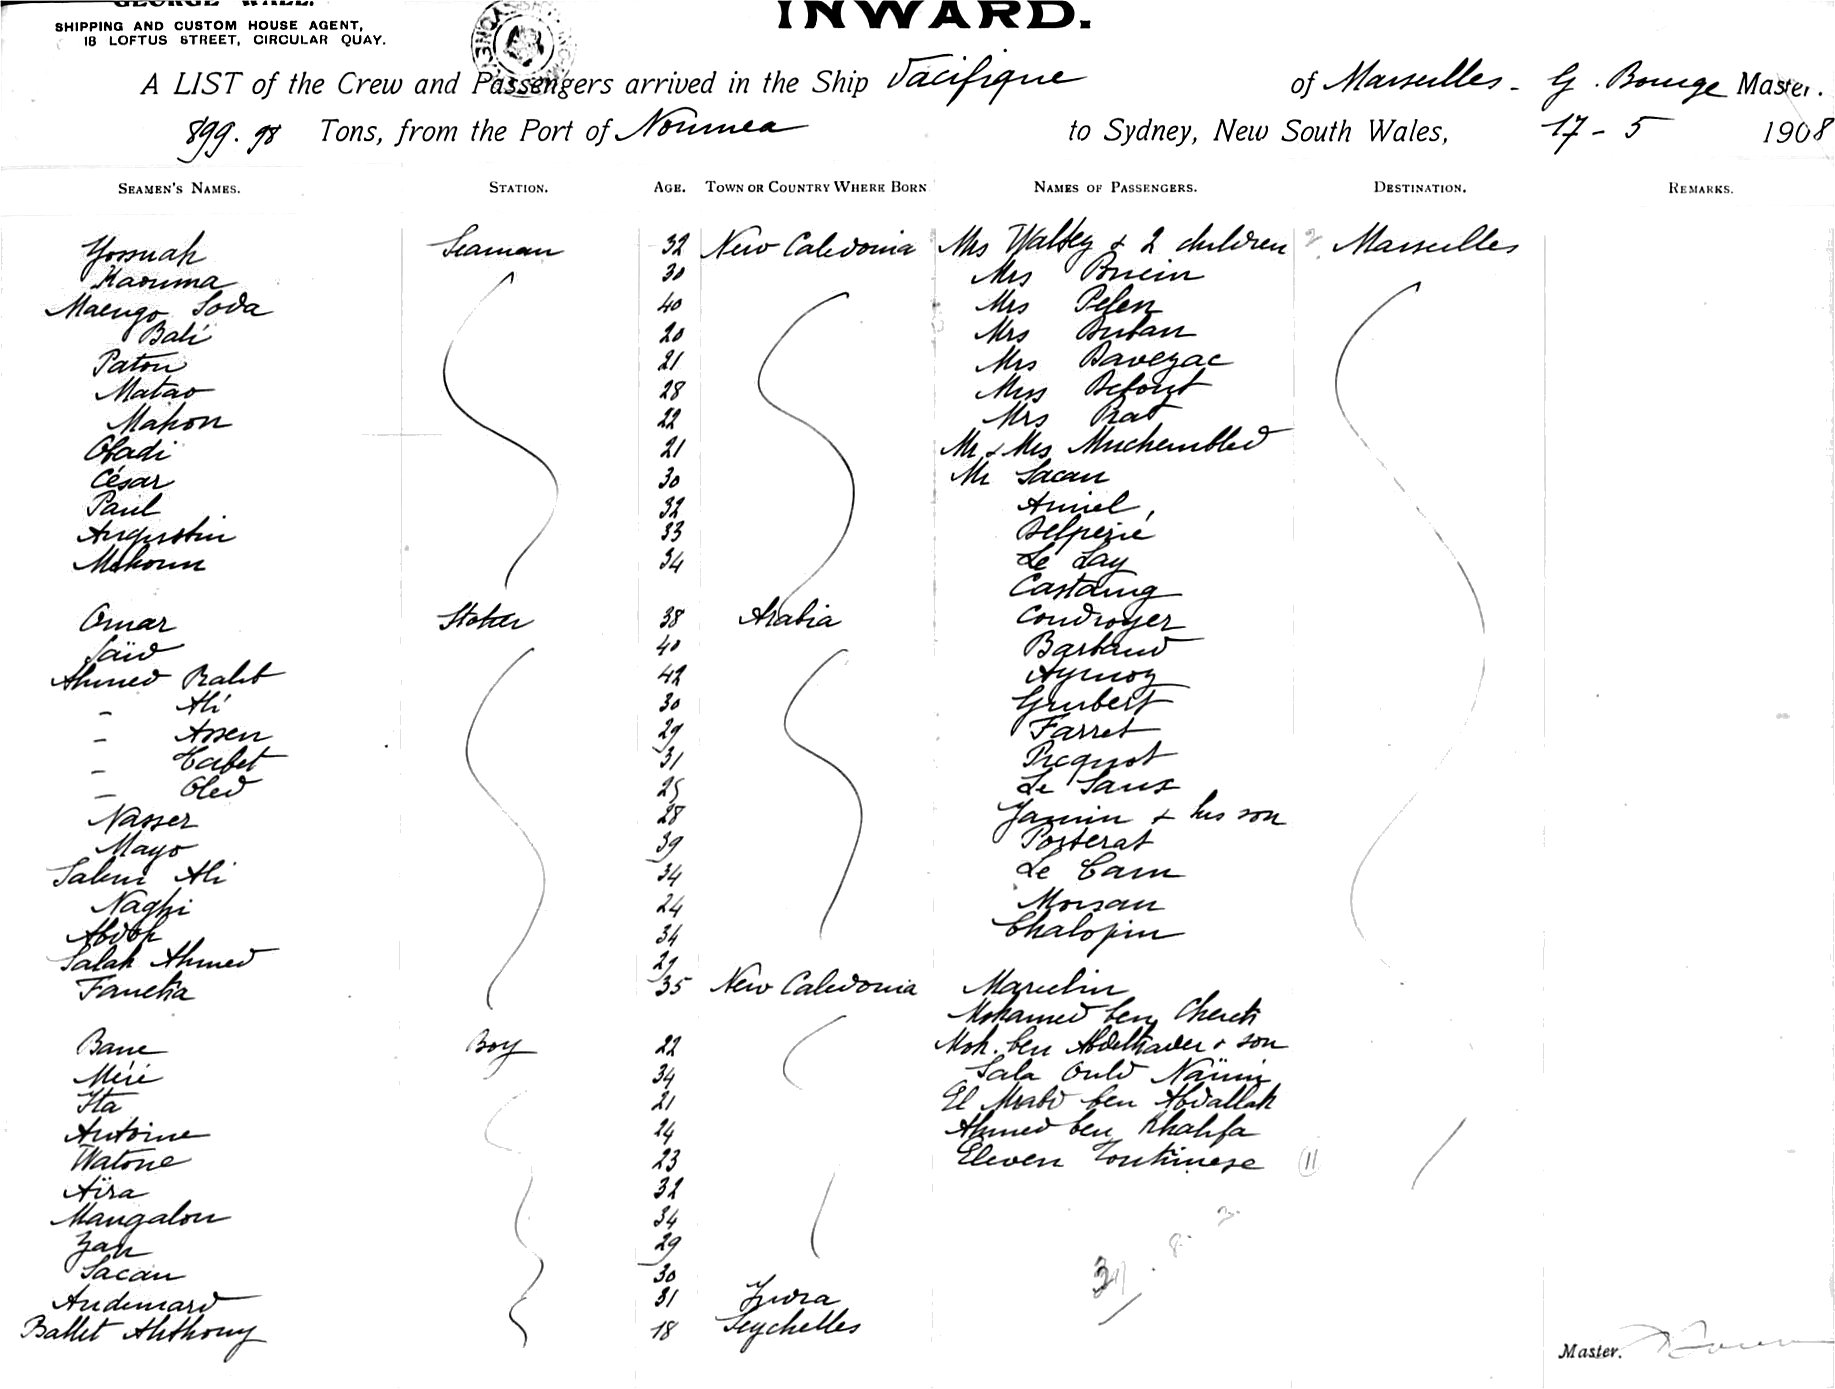 GEORGE WALL.
SHIPPING AND CUSTOM HOUSE AGENT,
18 LOFTUS STREET, CIRCULAR QUAY.
INWARD.
A LIST of the Crew and Passengers arrived in the Ship Pacifique of Marseilles - G. Bouge Master.
899.98 Tons, from the Port of Noumea to Sydney, New South Wales, 17-5 1908
SEAMEN'S NAMES. STATION. AGE. TOWN OR COUNTRY WHERE BORN NAMES OF PASSENGERS. DESTINATION. REMARKS.
Yossuah Seaman 32 New Caledonia Mrs & 2 children Marseilles
Kaouma 30 Mrs
Maengo Soda 40 Mrs Pelen
Bali 20 Mrs Duban
Paton 21 Mrs Davezac
Matao 28 Miss Defout
Mahon 22 Mrs Rat
Obadi 21 Mr & Mrs Muchembled
César 30 Mr Sacan
Paul 32 Amiel,
Augustin 33 Delperié
Mahoun 34 Le Lay
Castaing
Omar Stoker 38 Arabia Coudroyer
Saïd 40 Barbaud
Ahmed 42 Aymoz
- Ali 30 Grubert
- Assen 29 Farret
- Tabet 31 Picquot
- Obed 25 Le Saux
Nasser 28 Jamin & his son
Mayo 39 Posterat
Salem Ali 34 Le Cam
Naghi 24 Moisan
34 Chalopin
Salah Ahmed 29
Fanetia 35 New Caledonia Marcelin
Mohamed ben Cheich
Bane Boy 22 Moh. ben Abdelkader & son
Méré 34 Sala Ould Naïmi
Ita 21 El ben Abdallah
Antoine 24 Ahmed ben Khalifa
Watone 23 Eleven Tonkinese (11)
Aïra 32
Mangalou 34
Zan 29
Sacan 30
Audemard 31
Ballet Anthony 18 Seychelles
Master.